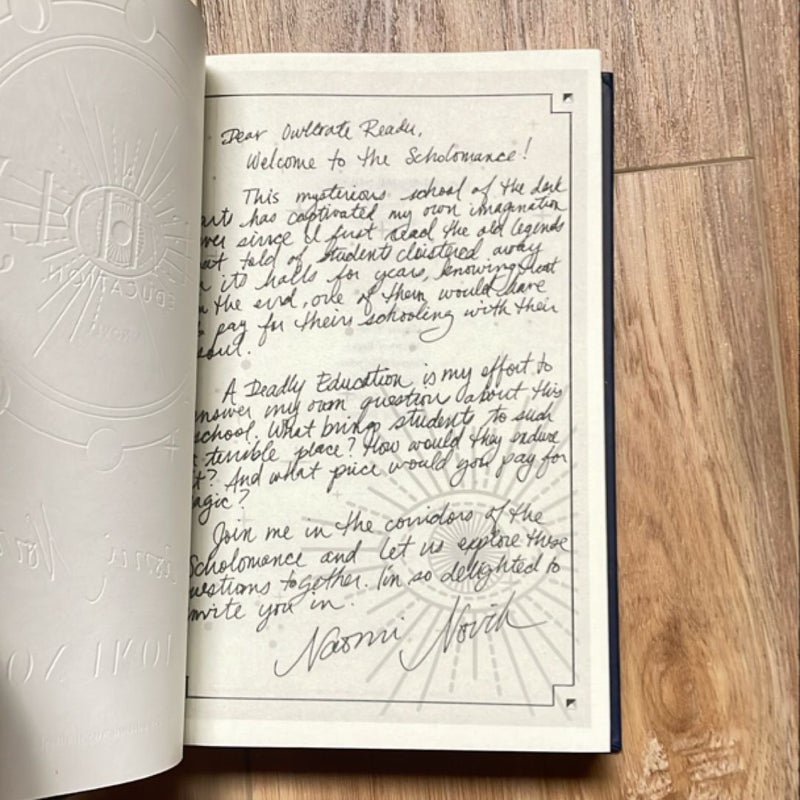 Dear Owlcrate Reader,
Welcome to the Scholomance!
This mysterious school of the dark
arts has captivated my own imagination
ver since I first read the old legends
at told of students cloistered away
n its halls for years, knowing that
n the end, one of them would have
o pay for their schooling with their
soul.
A Deadly Education is my effort to
nswer my own question about this
school. What brings students to such
a terrible place? How would they endure
it? And what price would you pay for
agic?
Join me in the corridors of the
Scholomance and let us explore these
uestions together. I'm so delighted to
nvite you in.
Naomi Novik
EDUCATION